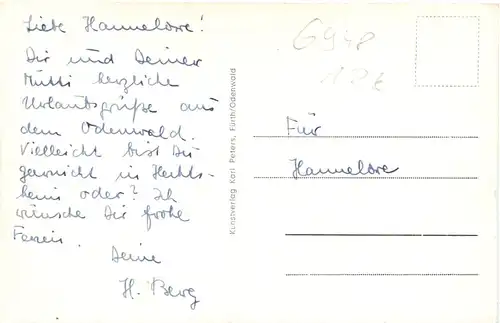 Liebe Hannelore!
Dir und Deiner
Mutti herzliche
Urlaubsgrüße aus
dem Odenwald.
Vielleicht bist Du
garnicht in Hechts-
heim oder? Ich
wünsche Dir frohe
Ferien.
Deine
H. Berg
Kunstverlag Karl Peters, Fürth/Odenwald
G948
Für
Hannelore